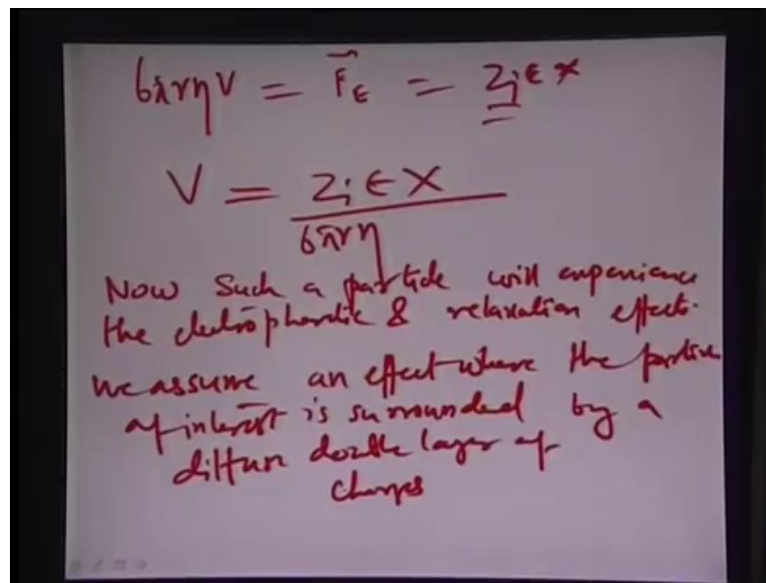 6πrηV = F⃗ε = Zjεx
V = Ziεx / 6πrη
Now such a particle will experience
the electrophoretic & relaxation effects.
we assume an effect where the particle
of interest is surrounded by a
diffuse double layer of
charges